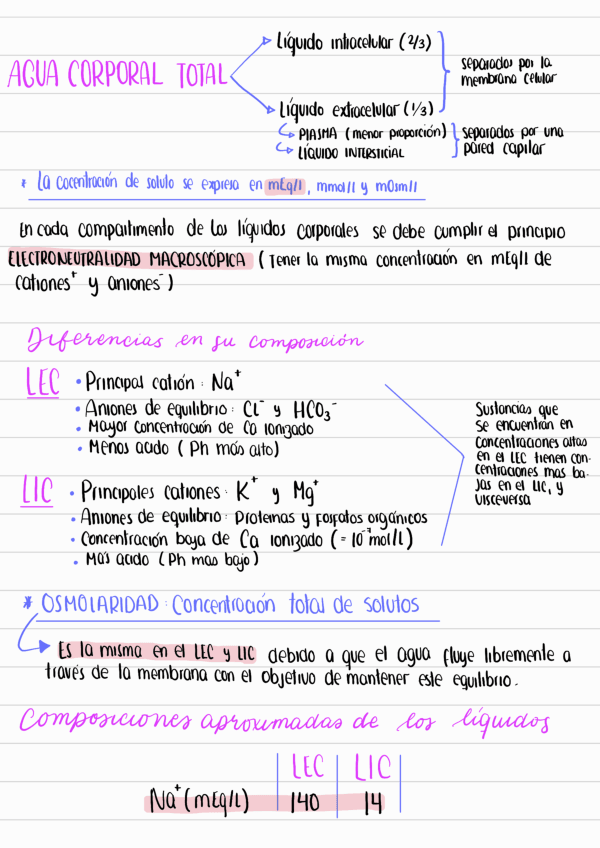 AGUA CORPORAL TOTAL
Líquido intracelular (2/3)
Líquido extracelular (1/3)
separados por la
membrana celular
PLASMA (menor proporción)
LÍQUIDO INTERSTICIAL
separados por una
pared capilar
* La cocentración de soluto se expresa en mEq/l, mmol/l y mOsm/l
En cada compartimento de los líquidos corporales se debe cumplir el principio
ELECTRONEUTRALIDAD MACROSCÓPICA (Tener la misma concentración en mEq/l de
cationes⁺ y aniones⁻)
Diferencias en su composición
LEC
• Principal catión: Na⁺
• Aniones de equilibrio: Cl⁻ y HCO₃⁻
• Mayor concentración de Ca ionizado
• Menos acido (Ph más alto)
LIC
• Principales cationes: K⁺ y Mg⁺
• Aniones de equilibrio: Proteínas y fosfatos orgánicos
• Concentración baja de Ca ionizado (= 10⁻⁷mol/L)
• Más acido (Ph mas bajo)
Sustancias que
se encuentran en
concentraciones altas
en el LEC tienen con-
centraciones mas ba-
jas en el LIC, y
visceversa
* OSMOLARIDAD: Concentración total de solutos
Es la misma en el LEC y LIC debido a que el agua fluye libremente a
través de la membrana con el objetivo de mantener este equilibrio.
Composiciones aproximadas de los líquidos
LEC LIC
Na⁺(mEq/L) 140 14